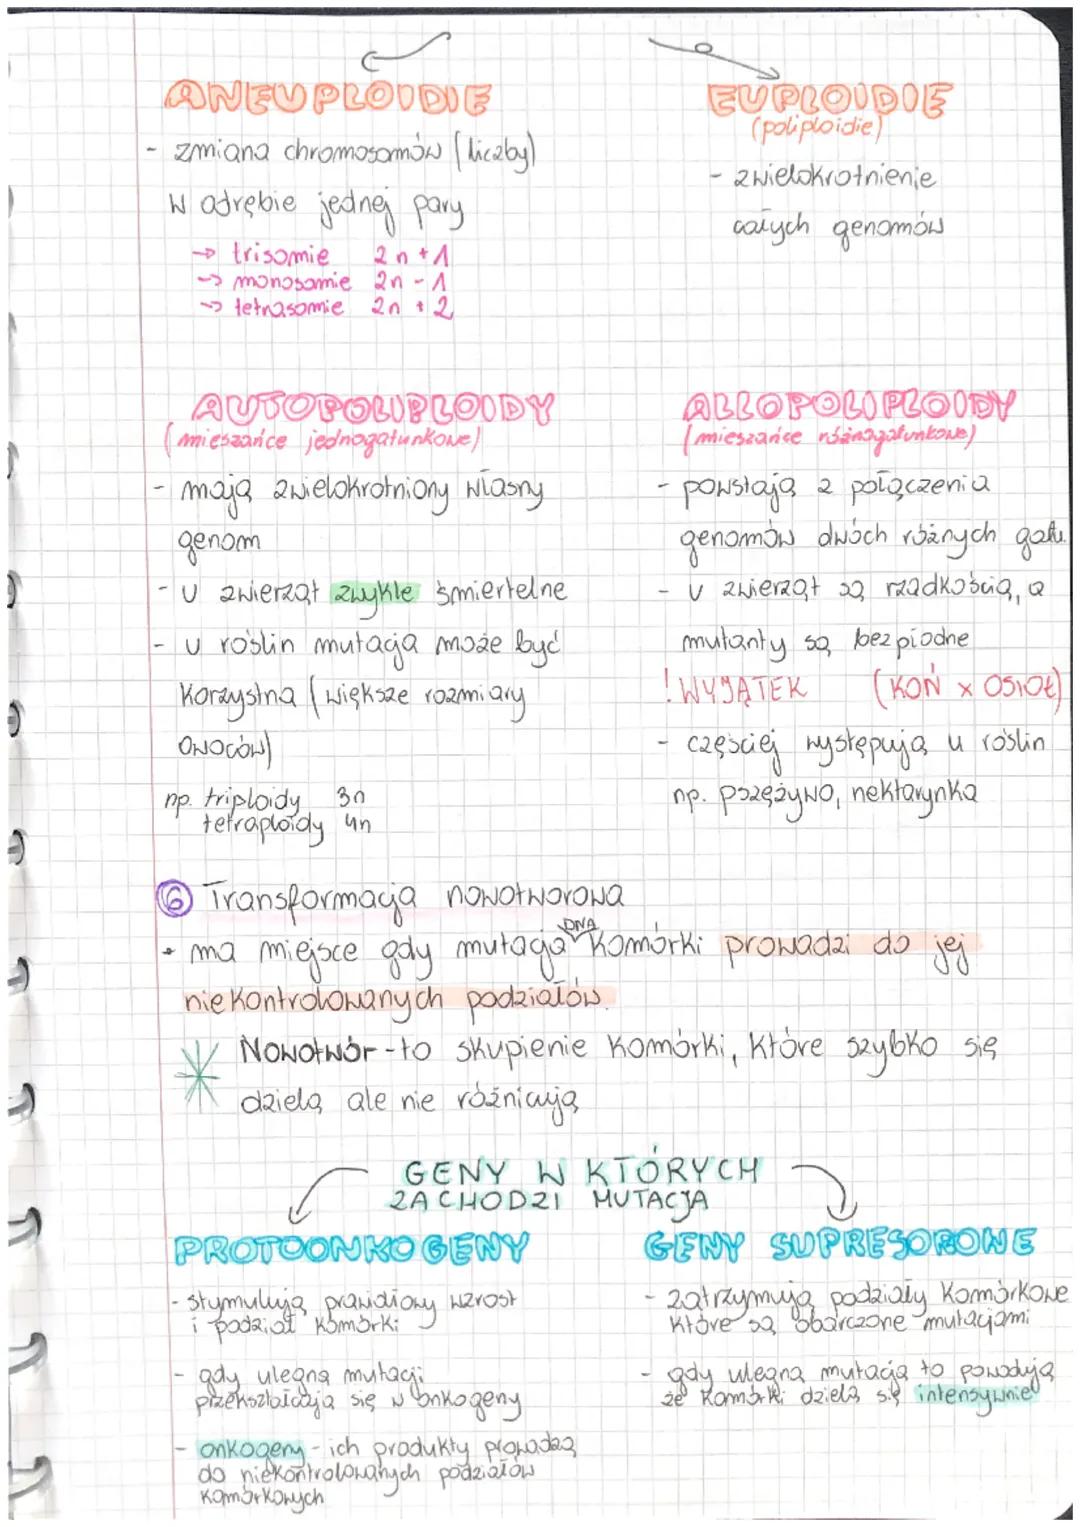 ANEUPLOIDIE
- zmiana chromosomów (liczby)
w odrębie jednej pary
→ trisomie 2n + 1
→ monosomie 2n - 1
→ tetrasomie 2n + 2
EUPLOIDIE
(poliploidie)
- zwielokrotnienie
całych genomów
AUTOPOLIPLOIDY
(mieszańce jednogatunkowe)
- mają zwielokrotniony własny
genom
- u zwierząt zwykle śmiertelne
- u roślin mutacja może być
korzystna (większe rozmiary
owoców)
np. triploidy 3n
tetraploidy 4n
ALLOPOLIPLOIDY
(mieszańce różnogatunkowe)
- powstają z połączenia
genomów dwóch różnych gatu.
- u zwierząt są rzadkością, a
mutanty są bezpłodne
! WYJĄTEK (KOŃ x OSIOŁ)
- częściej występują u roślin
np. pszężyto, nektarynka
⑥ Transformacja nowotworowa
• ma miejsce gdy mutacja DNA komórki prowadzi do jej
niekontrolowanych podziałów.
Nowotwór - to skupienie komórki, które szybko się
dzielą ale nie różnicują
GENY W KTÓRYCH
ZACHODZI MUTACJA
PROTOONKOGENY
- stymulują prawidłowy wzrost
i podział komórki
- gdy ulegną mutacji
przekształcają się w onkogeny
- onkogeny - ich produkty prowadzą
do niekontrolowanych podziałów
komórkowych
GENY SUPRESOROWE
- zatrzymują podziały komórkowe
które są obarczone mutacjami
- gdy ulegną mutacją to powodują
że komórki dzielą się intensywnie